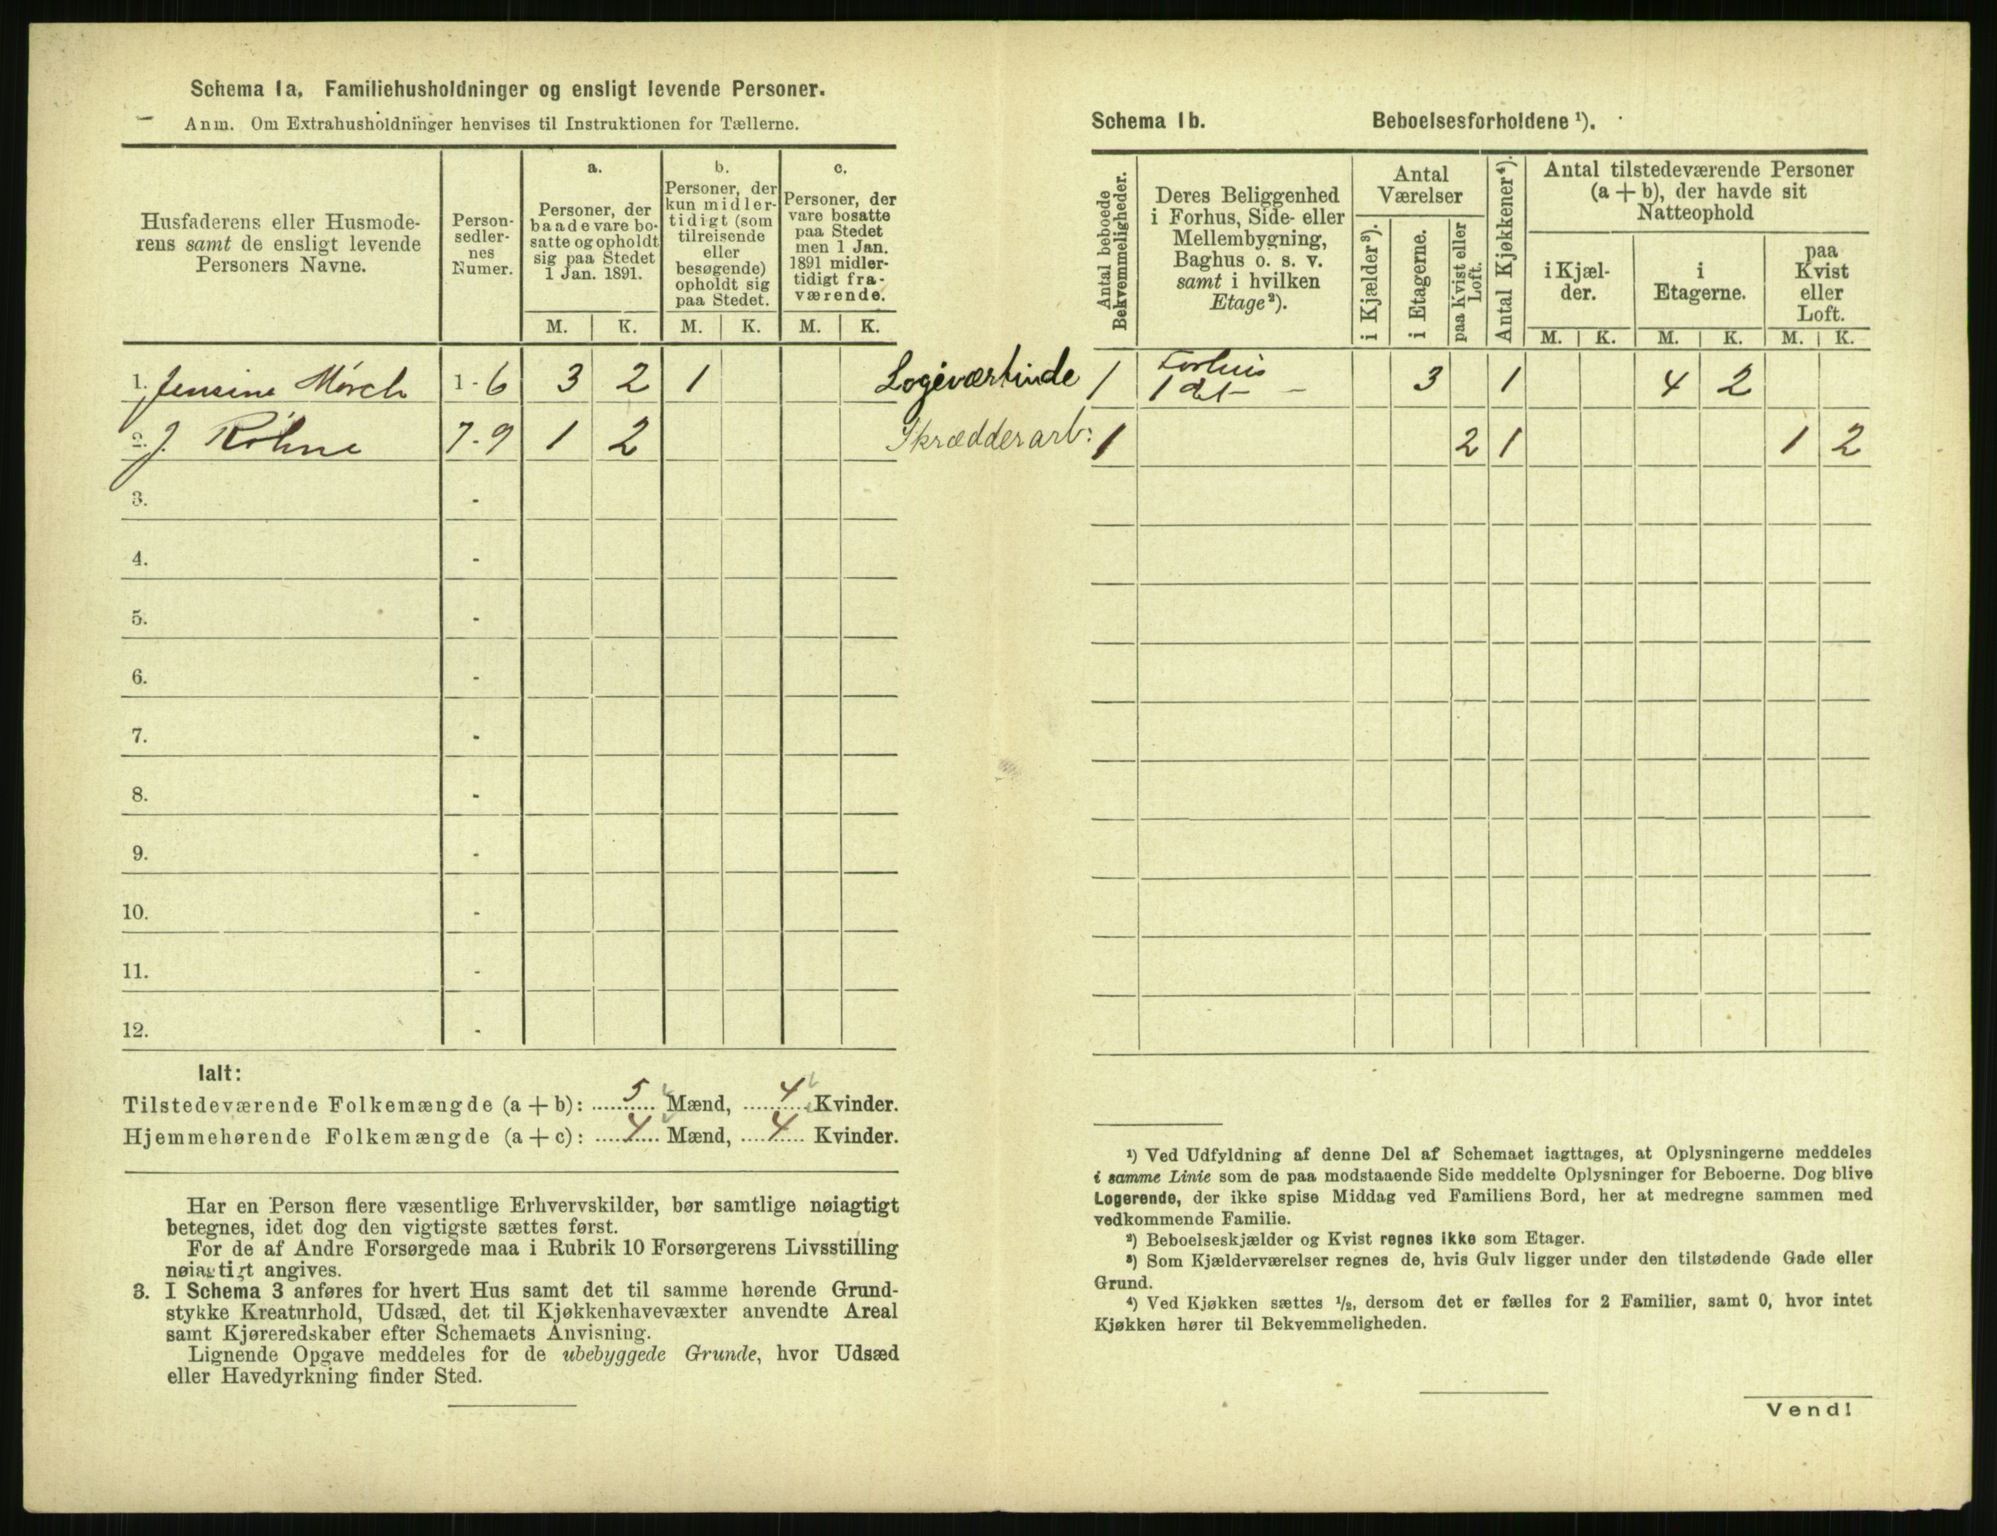 Schema 1a. Familiehusholdninger og ensligt levende Personer.
Anm. Om Extrahusholdninger henvises til Instruktionen for Tællerne.
Husfaderens eller Husmode-
rens samt de ensligt levende
Personers Navne.
Person-
sedler-
nes
Numer.
a.
Personer, der
baade vare bo-
satte og opholdt
sig paa Stedet
1 Jan. 1891.
b.
Personer, der
kun midler-
tidigt (som
tilreisende
eller
besøgende)
opholdt sig
paa Stedet.
c.
Personer, der
vare bosatte
paa Stedet
men 1 Jan.
1891 midler-
tidigt fra-
værende.
M. K. M. K. M. K.
1. Jensine Mørch 1-6 3 2 1 Logiværtinde
2. J. Røhne 7-9 1 2 Skrædderarb:
3. -
4. -
5. -
6. -
7. -
8. -
9. -
10. -
11. -
12. -
Ialt:
Tilstedeværende Folkemængde (a + b): 5 Mænd, 4 Kvinder.
Hjemmehørende Folkemængde (a + c): 4 Mænd, 4 Kvinder.
Har en Person flere væsentlige Erhvervskilder, bør samtlige nøiagtigt
betegnes, idet dog den vigtigste sættes først.
For de af Andre Forsørgede maa i Rubrik 10 Forsørgerens Livsstilling
nøiagtigt angives.
3. I Schema 3 anføres for hvert Hus samt det til samme hørende Grund-
stykke Kreaturhold, Udsæd, det til Kjøkkenhavevæxter anvendte Areal
samt Kjøreredskaber efter Schemaets Anvisning.
Lignende Opgave meddeles for de ubebyggede Grunde, hvor Udsæd
eller Havedyrkning finder Sted.
Schema 1b. Beboelsesforholdene ¹).
Antal beboede
Bekvemmeligheder.
Deres Beliggenhed
i Forhus, Side- eller
Mellembygning,
Baghus o. s. v.
samt i hvilken
Etage ²).
Antal
Værelser
i Kjælder ³).
i Etagerne.
paa Kvist eller
Loft.
Antal Kjøkkener ⁴).
Antal tilstedeværende Personer
(a + b), der havde sit
Natteophold
i Kjæl-
der.
i
Etagerne.
paa
Kvist
eller
Loft.
M. K. M. K. M. K.
1 Forhus
1 det - 3 1 4 2
1 2 1 1 2
¹) Ved Udfyldning af denne Del af Schemaet iagttages, at Oplysningerne meddeles
i samme Linie som de paa modstaaende Side meddelte Oplysninger for Beboerne. Dog blive
Logerende, der ikke spise Middag ved Familiens Bord, her at medregne sammen med
vedkommende Familie.
²) Beboelseskjælder og Kvist regnes ikke som Etager.
³) Som Kjælderværelser regnes de, hvis Gulv ligger under den tilstødende Gade eller
Grund.
⁴) Ved Kjøkken sættes ½, dersom det er fælles for 2 Familier, samt 0, hvor intet
Kjøkken hører til Bekvemmeligheden.
Vend!